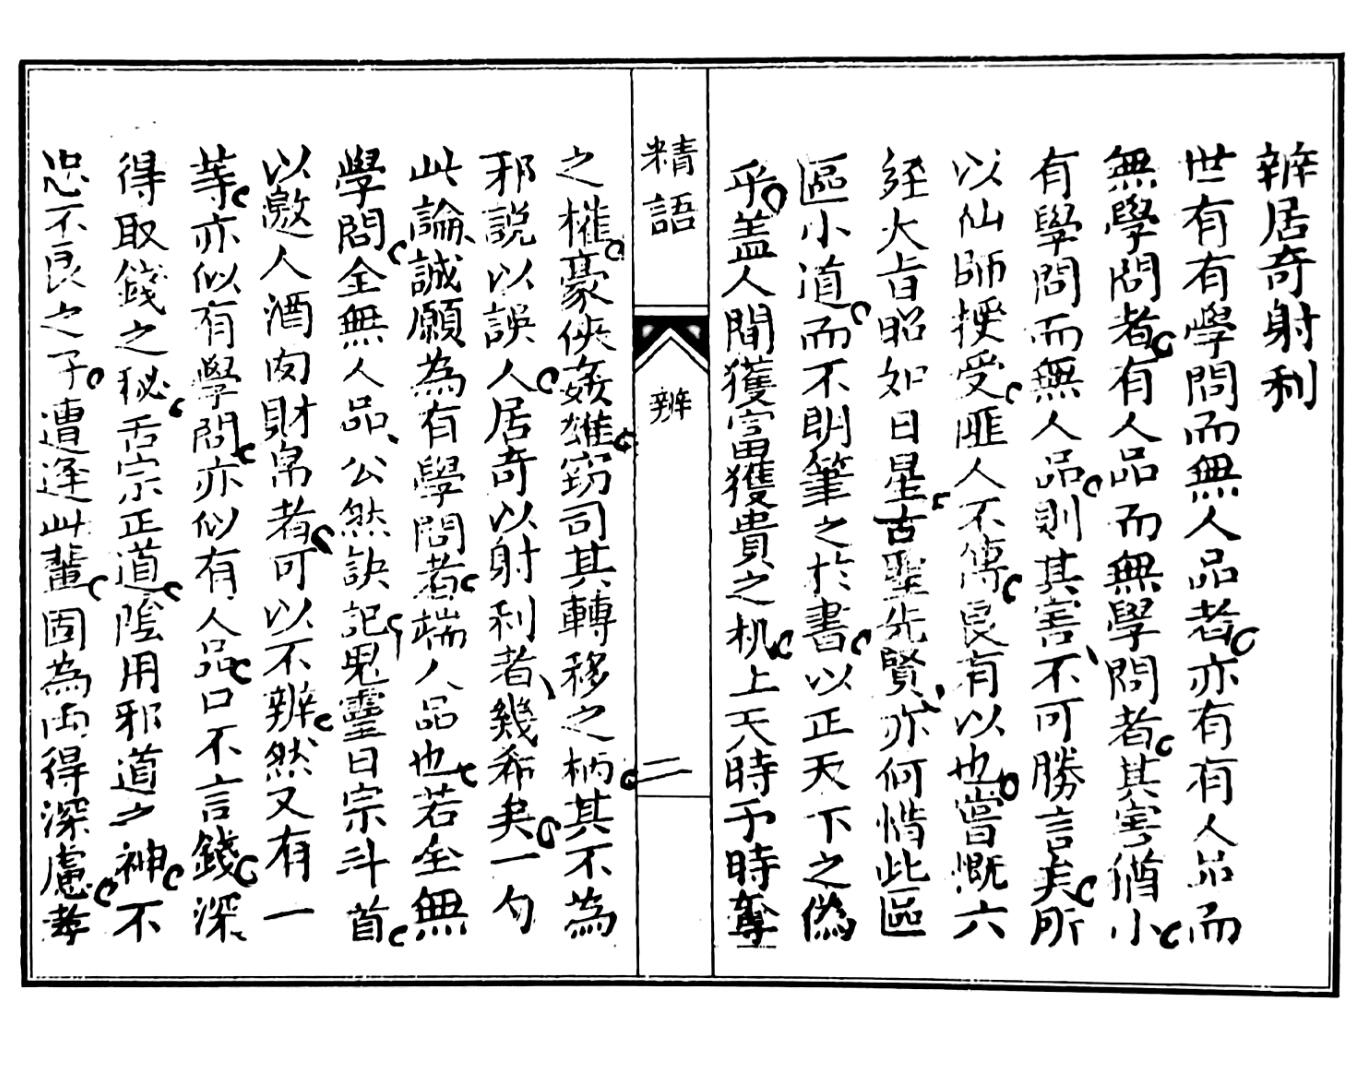 辨居奇射利
世有有學問而無人品者亦有有人品而
無學問者有人品而無學問者其害猶小
有學問而無人品則其害不可勝言矣所
以仙師授受匪人不傳良有以也嘗慨六
經大旨昭如日星古聖先賢亦何惜此區
區小道而不明筆之於書以正天下之偽
乎盖人間獲富獲貴之机上天時予時奪
精語
辨
二
之權豪俠姦雄窃司其轉移之柄其不為
邪說以誤人居奇以射利者幾希矣一勺
此論誠願為有學問者端人品也若全無
學問全無人品公然訣記鬼靈曰宗斗首
以邀人酒肉財帛者可以不辨然又有一
等亦似有學問亦似有人品口不言錢深
得取錢之秘舌宗正道陰用邪道之神不
忠不良之子遭逢此輩固為両得深慮孝